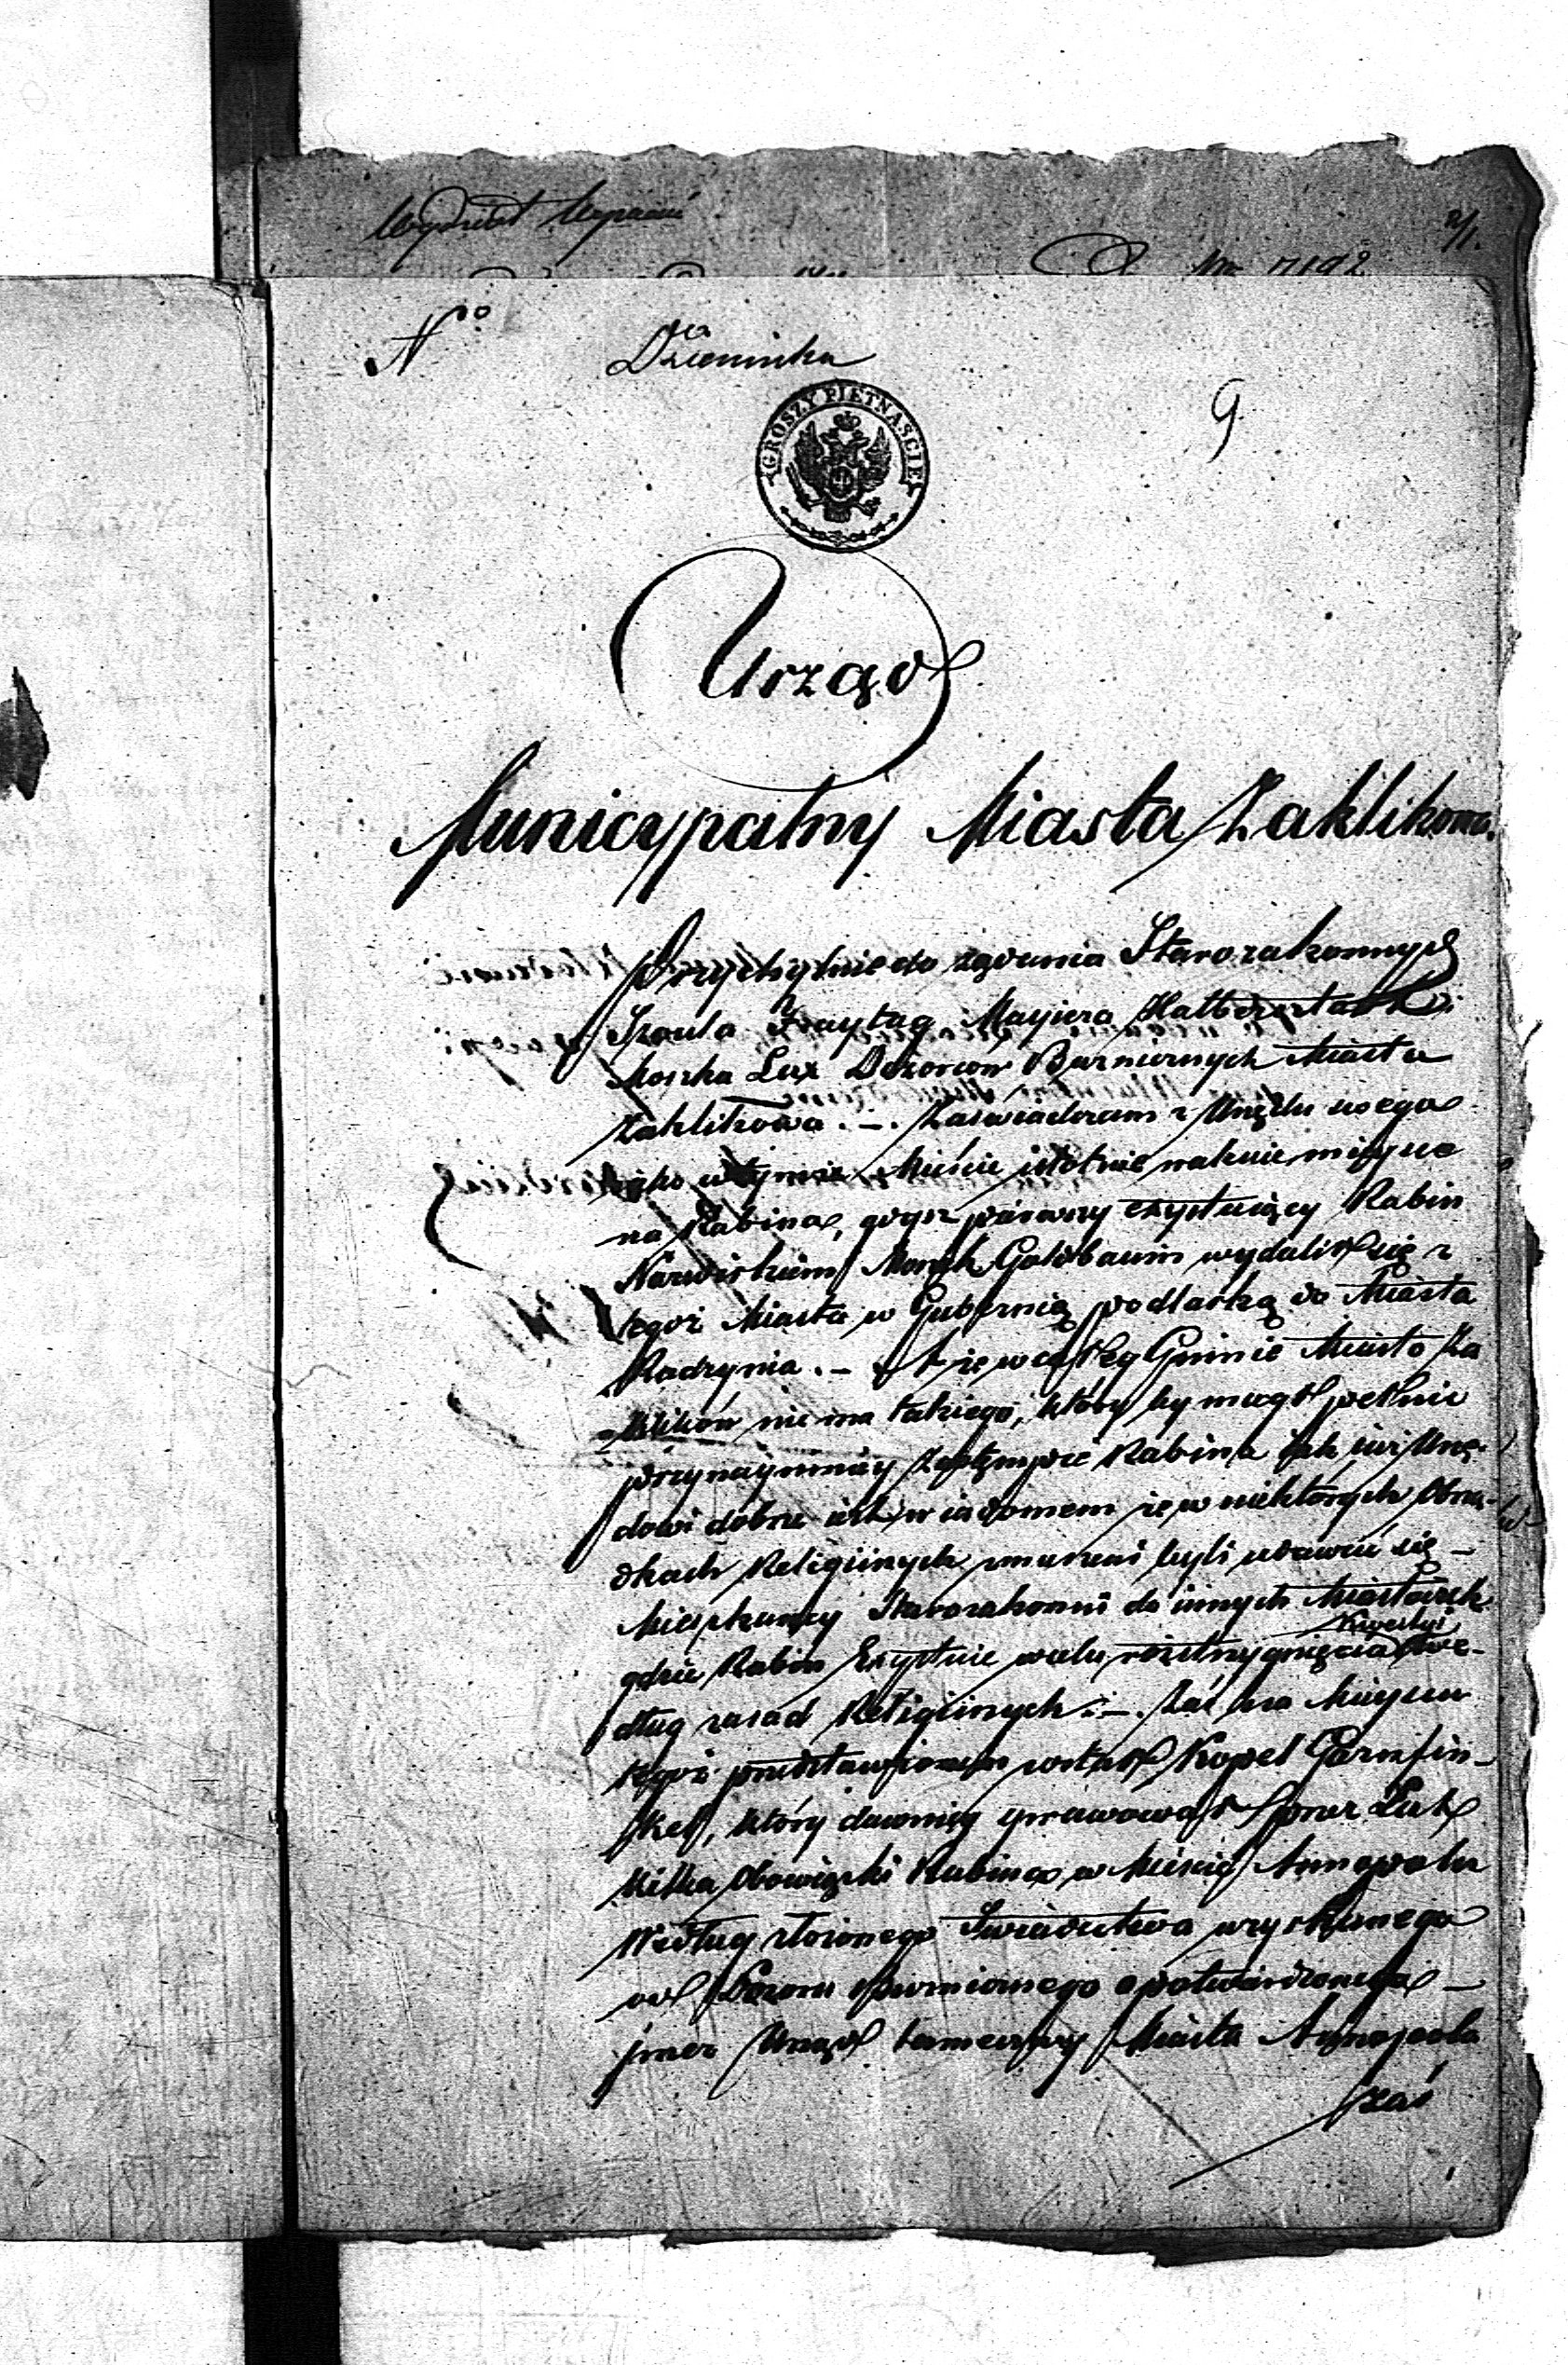 Wydział
No 7192
No Dziennika
9
GROSZY PIĘTNAŚCIE
Urząd
Municypalny Miasta Zaklikowa.
Przychylnie do żądania Starozakonnych
Szoula Fraytag Mayiera Halbersztadt i
Moszka Lux Dozorców Bużnicznych Miasta
Zaklikowa. —. Zaświadczam z Urzędu swego
iako w tymże Mieście istotnie wakuie mieysce
na Rabina, gdyż pierwszy exystuiący Rabin
Nazwiskiem Moszk Goldbaum wydalił się z
tegoż Miasta w Gubernią podlaską do Miasta
Radzynia. — A że w całey Gminie Miasto Za
klików nie ma takiego, któryby mógł pełnić
przynaymniey Zastępcę Rabina jak iuż Urzę-
dowi dobrze iest wiadomem że w niektórych Obrzą-
dkach Religiinych zmuszeni byli udawać się —
Mieszkańcy Starozakonni do innych Miasteczek
gdzie Rabin Exystuie w celu rozstrzygnięcia Kwestyi we-
dług zasad Religiinych. —. Zaś na Mieysce
tegoż przedstawionem został Kopel Garnfin-
kel, który dawniey sprawował przez Lat
kilka Obowiązki Rabina w Mieście Annopolu
Według złożonego Świadectwa uzyskanego
od Dozoru Bużnicznego a potwierdzonego —
przez Urząd tameczny Miasta Annopola
zaś